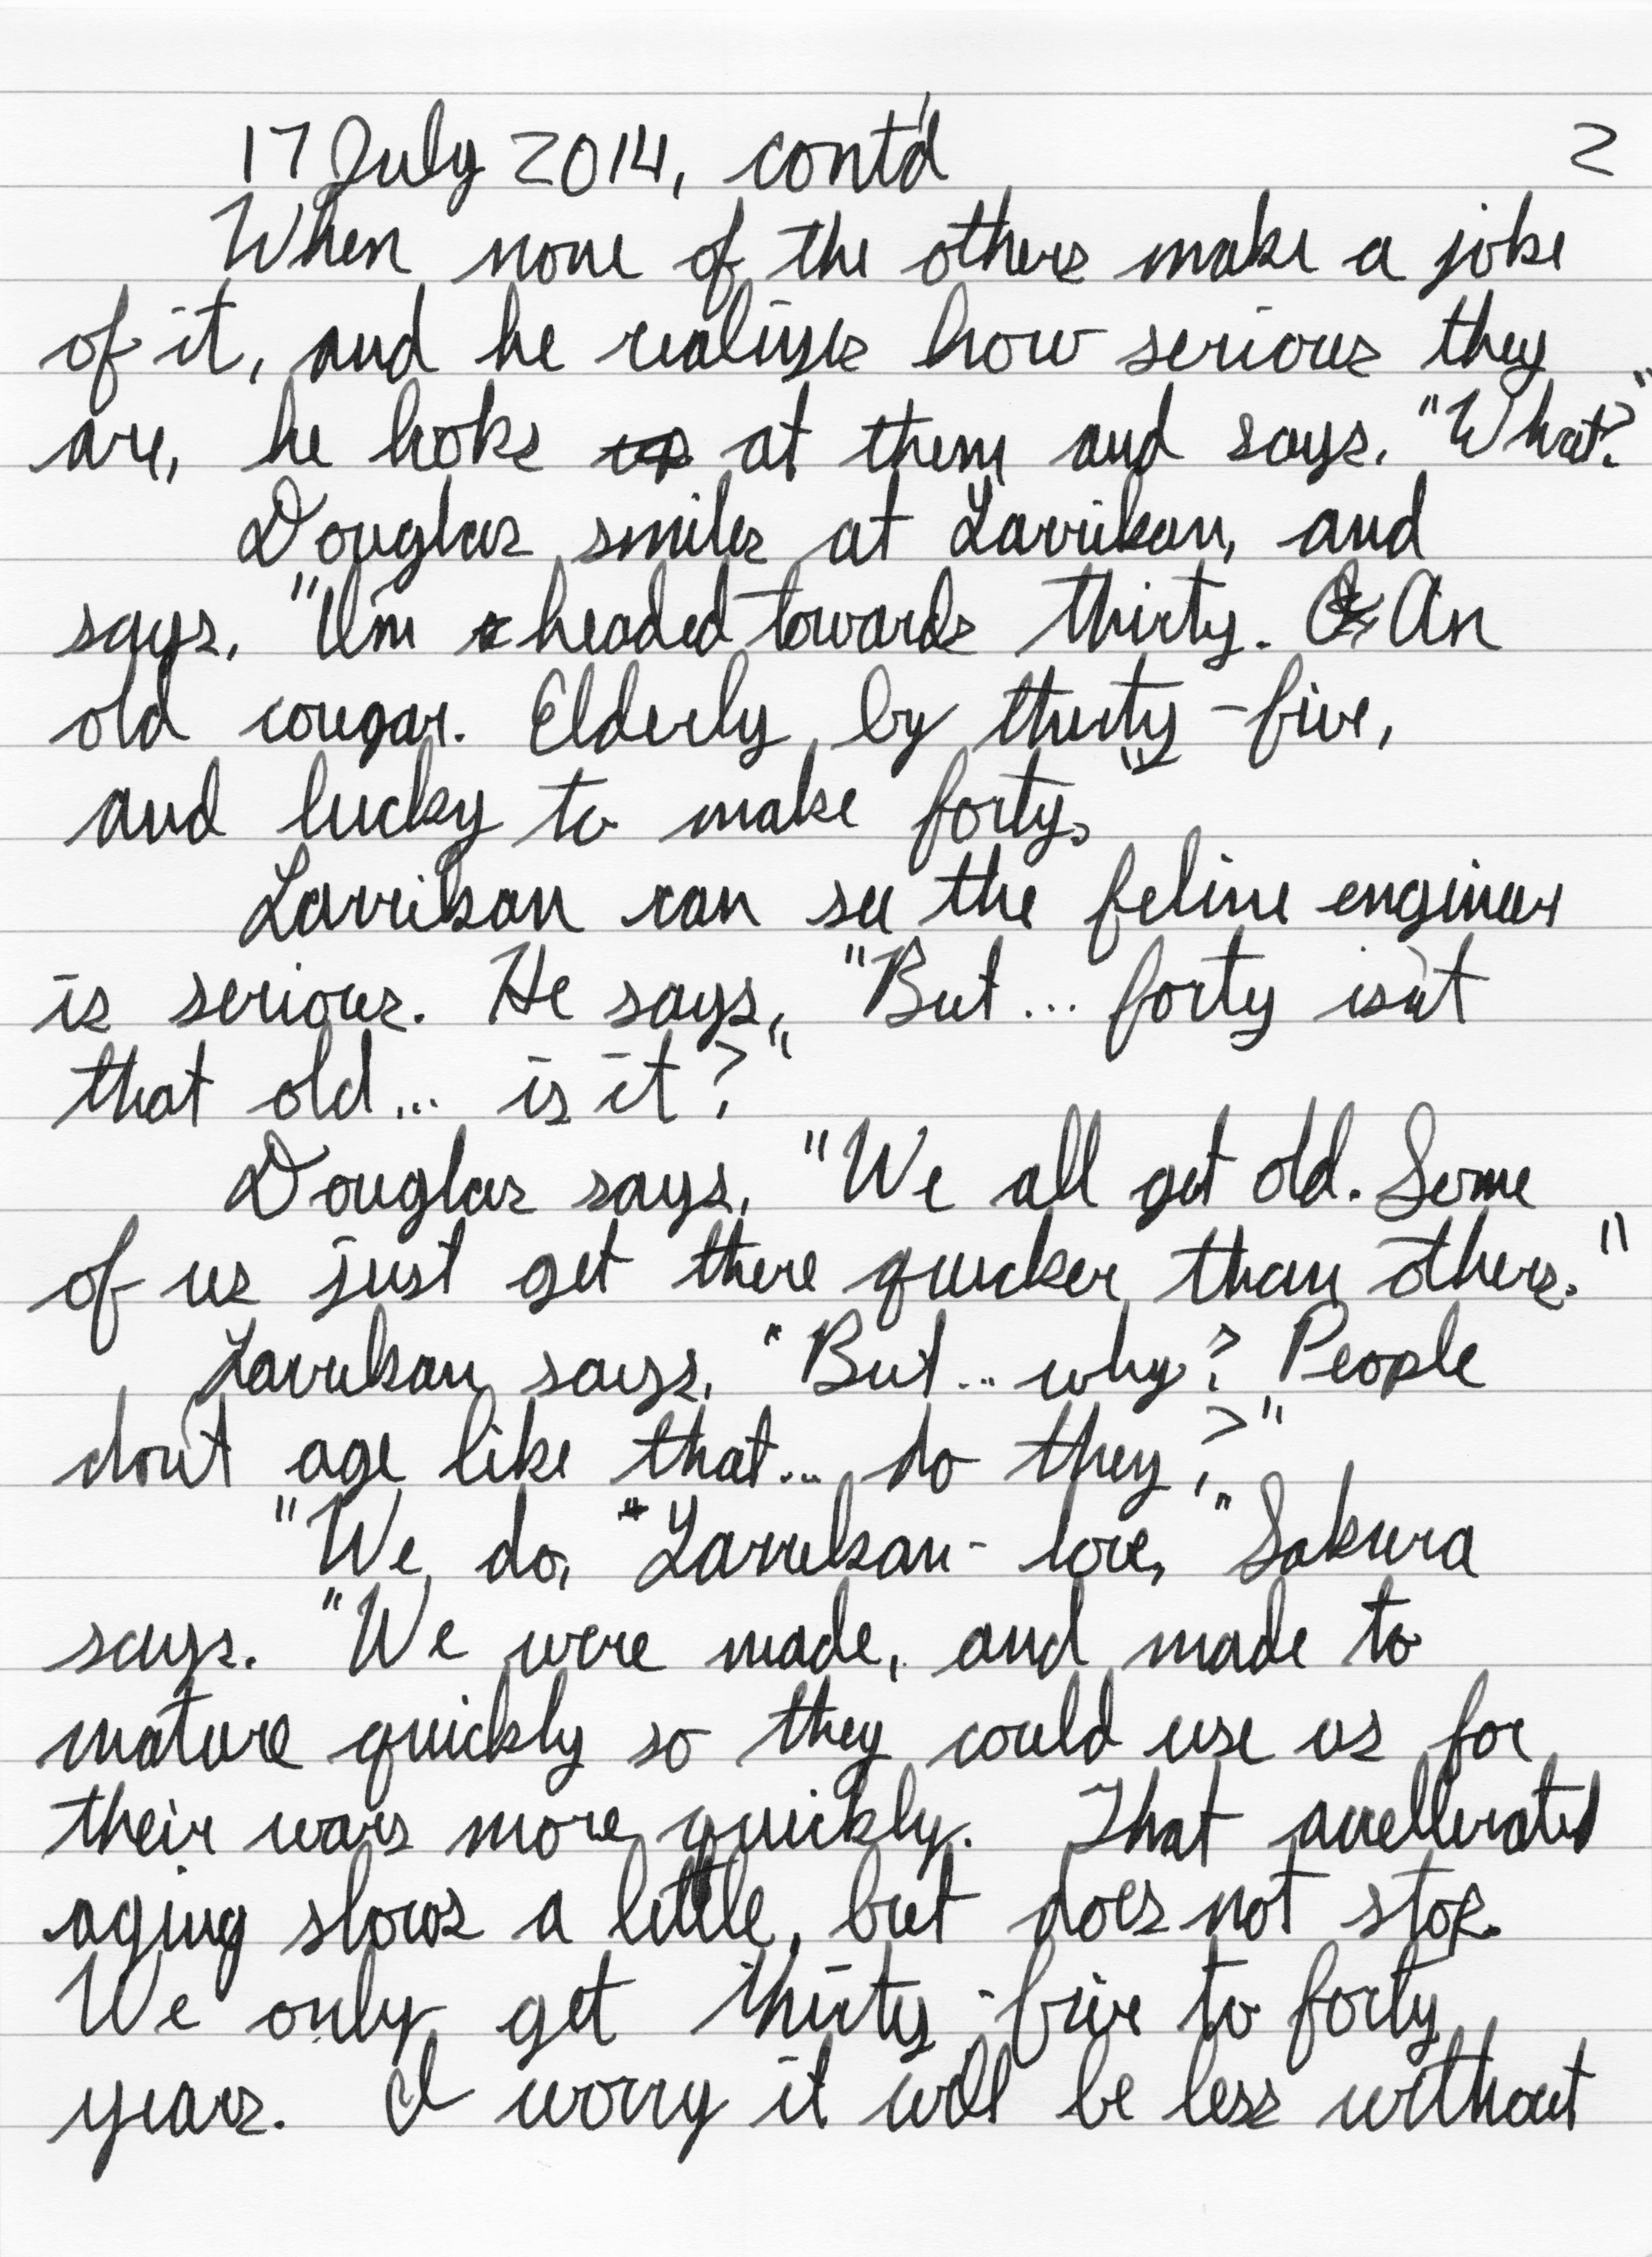 17 July 2014, cont'd 2
When none of the others make a joke
of it, and he realizes how serious they
are, he looks at them and says, "What?"
Douglas smiles at Larrikan, and
says, "I'm headed towards thirty. An
old cougar. Elderly by thirty-five,
and lucky to make forty."
Larrikan can see the feline engineer
is serious. He says, "But... forty isn't
that old... is it?"
Douglas says, "We all get old. Some
of us just get there quicker than others."
Larrikan says, "But... why? People
don't age like that... do they?"
"We do, Larrikan-love," Sakura
says. "We were made, and made to
mature quickly so they could use us for
their wars more quickly. That accellerated
aging slows a little, but does not stop.
We only get thirty-five to forty
years. I worry it will be less without